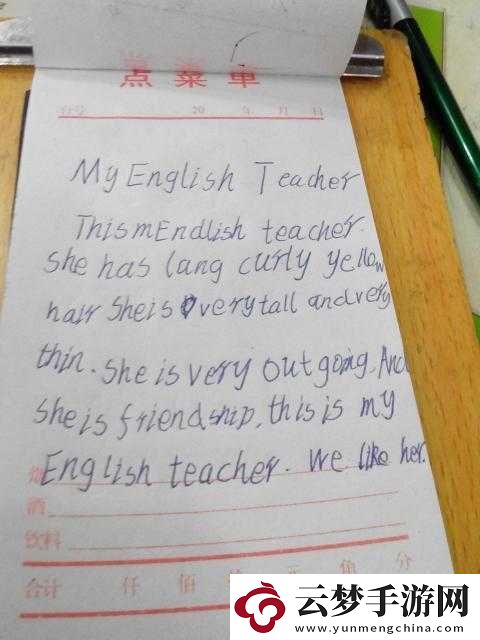 点菜单
台号 20 年 月 日
My English Teacher
This mEndlish teacher.
She has lang curly yellow
hair She is very tall and very
thin. She is very out going, And
she is friendship, this is my
English teacher. We like her.
酒
饮料
合计 仟 佰 拾 元 角 分
云梦手游网
www.yunmengchina.com